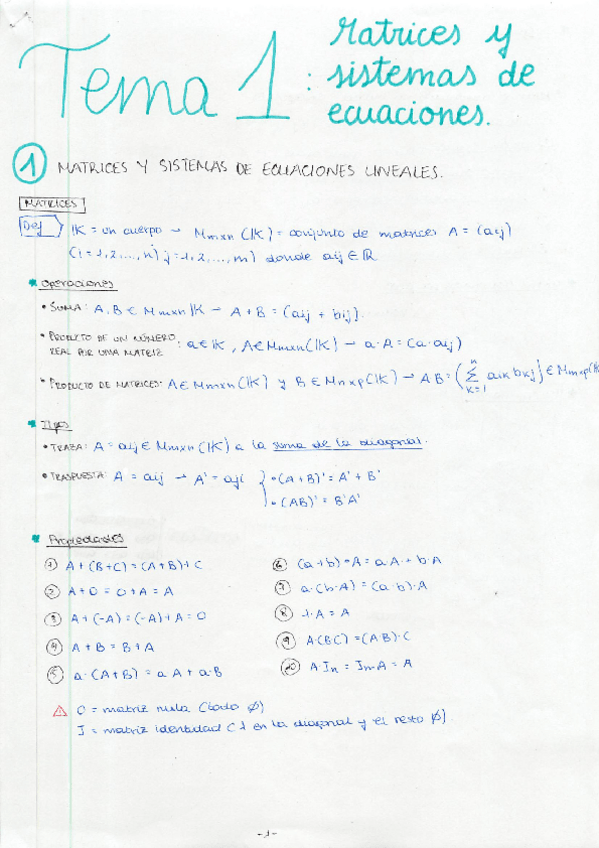 Tema 1: Matrices y
sistemas de
ecuaciones.
1 MATRICES Y SISTEMAS DE ECUACIONES LINEALES.
MATRICES
Def IK = un cuerpo → Mmxn (IK) = conjunto de matrices A = (aij)
(i = 1,2,...,n j = 1,2,...,m) donde aij ∈ IR
* Operaciones
• SUMA: A, B ∈ Mmxn IK → A + B = (aij + bij).
• PRODUCTO DE UN NÚMERO
REAL POR UNA MATRIZ : a ∈ IK, A ∈ Mmxn(IK) → a·A = (a·aij)
• PRODUCTO DE MATRICES: A ∈ Mmxn (IK) y B ∈ Mnxp(IK) → AB = (∑ⁿₖ₌₁ aik bkj) ∈ Mmxp(IK
* Tipos
• TRAZA: A = aij ∈ Mmxn (IK) a la suma de la diagonal.
• TRASPUESTA: A = aij → A' = aji { • (A+B)' = A' + B'
• (AB)' = B'A'
* Propiedades
1 A + (B+C) = (A+B)+C
2 A+0 = 0+A = A
3 A+(-A) = (-A)+A = 0
4 A + B = B+A
5 a·(A+B) = a·A + a·B
6 (a+b)·A = a·A + b·A
7 a·(b·A) = (a·b)·A
8 1·A = A
9 A·(BC) = (A·B)·C
10 A·In = ImA = A
⚠ O = matriz nula (todo Ø)
I = matriz identidad (1 en la diagonal y el resto Ø).
-1-